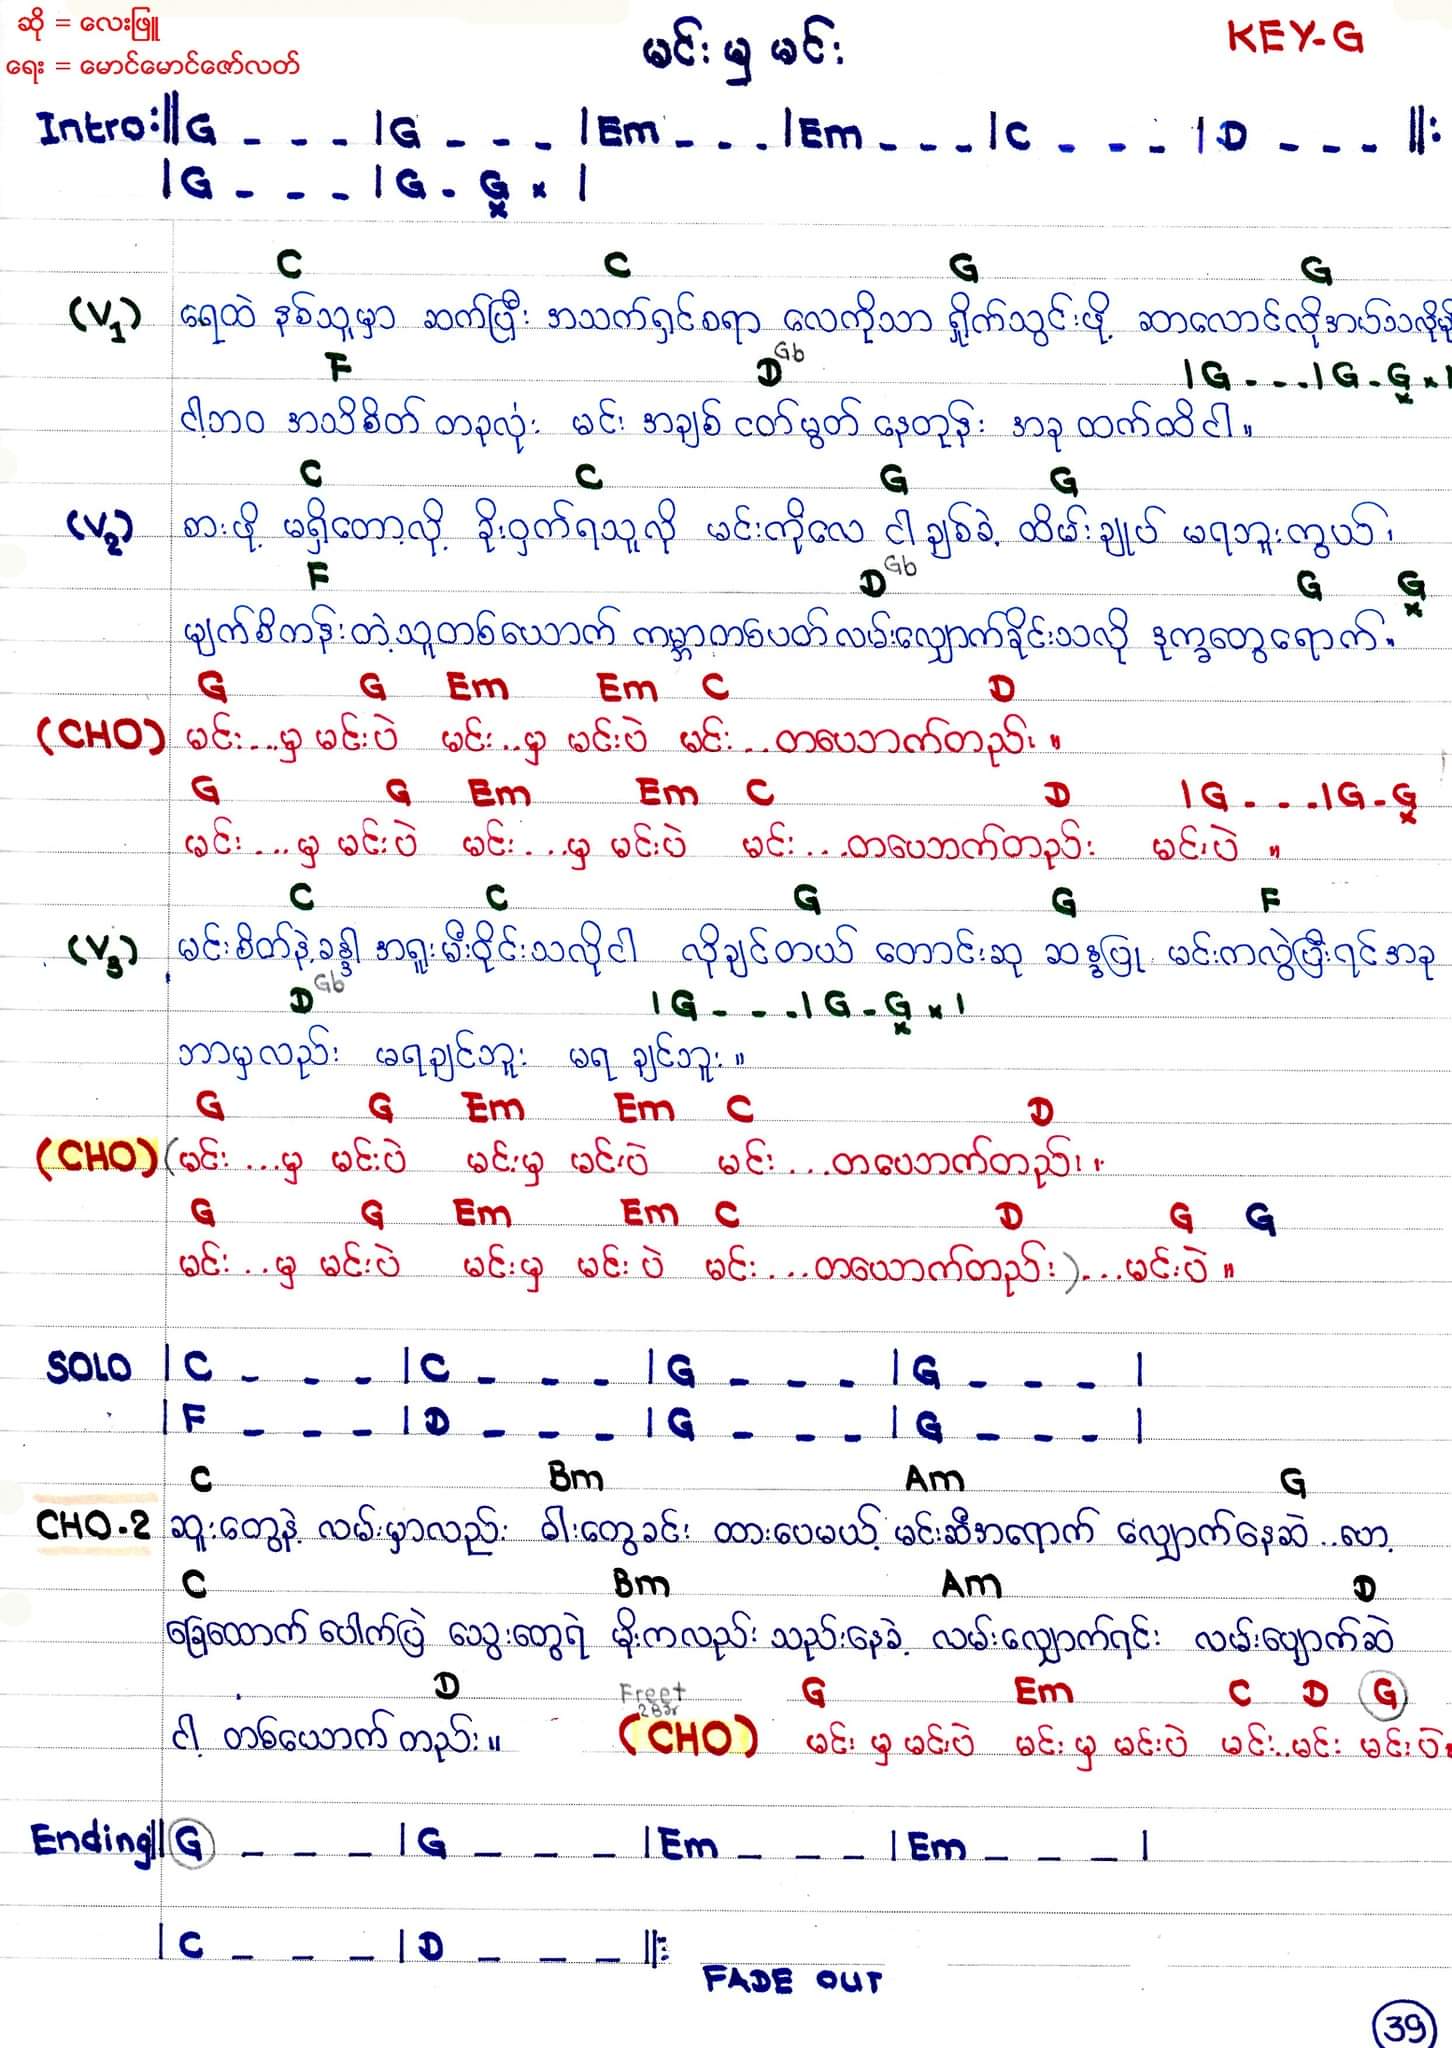 ဆို = လေးဖြူ
ရေး = မောင်မောင်ဇော်လတ်
မင်းမှ မင်း
KEY-G
Intro:||G _ _ _ |G _ _ _ |Em _ _ _ |Em _ _ _ |C _ _ _ |D _ _ _ ||:
|G _ _ _ |G - G x |
C C G G
(V1) ရေထဲ နစ်သူမှာ ဆက်ပြီး အသက်ရှင်စရာ လေကိုသာ ရှိုက်သွင်းဖို့ ဆာလောင်လို့အယ်သလိုမို့
F D Gb |G _ _ _ |G - G x |
ငါ့ဘဝ အသိစိတ် တခုလုံး မင်း အချစ် ငတ်မွတ် နေတုန်း အခု ထက်ထိ ငါ။
C C G G
(V2) စားဖို့ မရှိတော့လို့ ခိုးဝှက်ရသူလို မင်းကိုလေ ငါ ချစ်ခဲ့ ထိမ်းချုပ် မရဘူးကွယ်၊
F D Gb G G
မျက်စိကန်းတဲ့သူတစ်ယောက် ကမ္ဘာတစ်ပတ် လမ်းလျှောက်ခိုင်းသလို ဒုက္ခတွေရောက်။
G G Em Em C D
(CHO) မင်း...မှ မင်းပဲ မင်း..မှ မင်းပဲ မင်း...တယောက်တည်း။
G G Em Em C D |G _ _ _ |G - G
မင်း...မှ မင်းပဲ မင်း...မှ မင်းပဲ မင်း...တယောက်တည်း မင်းပဲ ။
C C G G F
(V3) မင်းစိတ်နဲ့ခန္ဓါ အရူးမီးဝိုင်းသလိုငါ လိုချင်တယ် တောင်းဆု ဆန္ဒပြု မင်းကလွဲပြီးရင်အခု
D Gb |G _ _ _ |G - G x |
ဘာမှလည်း မရချင်ဘူး မရ ချင်ဘူး။
G G Em Em C D
(CHO) (မင်း...မှ မင်းပဲ မင်းမှ မင်းပဲ မင်း...တယောက်တည်း။
G G Em Em C D G G
မင်း..မှ မင်းပဲ မင်းမှ မင်းပဲ မင်း...တယောက်တည်း)...မင်းပဲ။
SOLO |C _ _ _ |C _ _ _ |G _ _ _ |G _ _ _ |
|F _ _ _ |D _ _ _ |G _ _ _ |G _ _ _ |
C Bm Am G
CHO.2 ဆူးတွေနဲ့ လမ်းမှာလည်း ဓါးတွေခင်း ထားပေမယ့် မင်းဆီအရောက် လျှောက်နေဆဲ ..ဟော့
C Bm Am D
ခြေထောက် ပေါက်ပြဲ သွေးတွေရဲ မိုးကလည်း သည်းနေခဲ့ လမ်းလျှောက်ရင်း လမ်းပျောက်ဆဲ
D Freet G Em C D G
ငါ့ တစ်ယောက် တည်း။ (CHO) မင်း မှ မင်းပဲ မင်း မှ မင်းပဲ မင်း..မင်း မင်းပဲ။
Ending||G _ _ _ |G _ _ _ |Em _ _ _ |Em _ _ _ |
|C _ _ _ |D _ _ _ ||:
FADE OUT
39